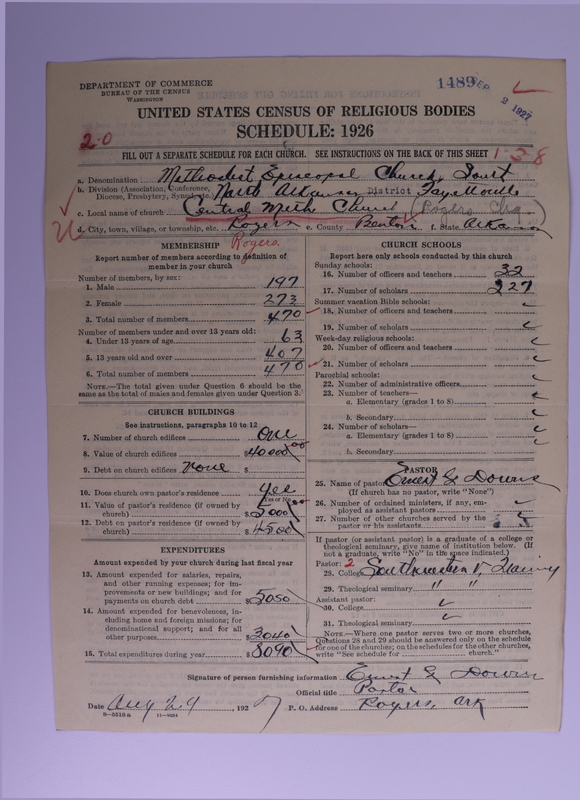 DEPARTMENT OF COMMERCE
BUREAU OF THE CENSUS
WASHINGTON
1489 SEP 2 1927
UNITED STATES CENSUS OF RELIGIOUS BODIES
SCHEDULE: 1926
2-0
FILL OUT A SEPARATE SCHEDULE FOR EACH CHURCH. SEE INSTRUCTIONS ON THE BACK OF THIS SHEET 1-38
a. Denomination Methodist Episcopal Church, South
b. Division (Association, Conference, Diocese, Presbytery, Synod, etc.) North Arkansas District Fayetteville
c. Local name of church Central Meth Church (Rogers Cha.)
d. City, town, village, or township, etc. Rogers e. County Benton f. State Arkansas
Rogers.
MEMBERSHIP
Report number of members according to definition of member in your church
Number of members, by sex:
1. Male 197
2. Female 273
3. Total number of members 470
Number of members under and over 13 years old:
4. Under 13 years of age 63
5. 13 years old and over 407
6. Total number of members 470
NOTE.—The total given under Question 6 should be the same as the total of males and females given under Question 3.
CHURCH BUILDINGS
See instructions, paragraphs 10 to 12
7. Number of church edifices One
8. Value of church edifices $40000 00
9. Debt on church edifices None $
10. Does church own pastor's residence Yes
Yes or No
11. Value of pastor's residence (if owned by church) $5000
12. Debt on pastor's residence (if owned by church) $4500
EXPENDITURES
Amount expended by your church during last fiscal year
13. Amount expended for salaries, repairs, and other running expenses; for improvements or new buildings; and for payments on church debt $5050
14. Amount expended for benevolences, including home and foreign missions; for denominational support; and for all other purposes $3040
15. Total expenditures during year $8090
CHURCH SCHOOLS
Report here only schools conducted by this church
Sunday schools:
16. Number of officers and teachers 32
17. Number of scholars 327
Summer vacation Bible schools:
18. Number of officers and teachers
19. Number of scholars
Week-day religious schools:
20. Number of officers and teachers
21. Number of scholars
Parochial schools:
22. Number of administrative officers
23. Number of teachers—
a. Elementary (grades 1 to 8)
b. Secondary
24. Number of scholars—
a. Elementary (grades 1 to 8)
b. Secondary
PASTOR
25. Name of pastor Ernest G Downs
(If church has no pastor, write "None")
26. Number of ordained ministers, if any, employed as assistant pastors
27. Number of other churches served by the pastor or his assistants
If pastor (or assistant pastor) is a graduate of a college or theological seminary, give name of institution below. (If not a graduate, write "No" in the space indicated.)
Pastor: 2
28. College Southwestern U,
29. Theological seminary " "
Assistant pastor:
30. College
31. Theological seminary
NOTE.—Where one pastor serves two or more churches, Questions 28 and 29 should be answered only on the schedule for one of the churches; on the schedules for the other churches, write "See schedule for church."
Signature of person furnishing information Ernest G Downs
Official title Pastor
Date Aug 29 1927 P. O. Address Rogers, Ark
8—5510a 11—9284